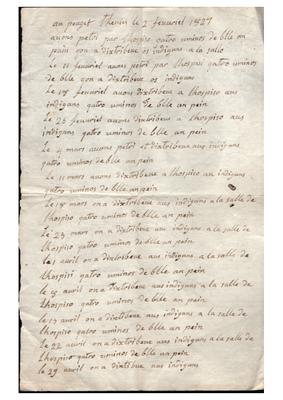 au pouget Thenin le 2 feuvriel 1827
auons petri par l'hospiso qatro uminos de blle en
pain qon a dixtribeue os indiguns a la salle
le 11 feuvriel auons petri par lhospiso qatro uminos
de blle qon a dixtribeue os indiguns
le 18 feuvriel auons dixtribeue a lhospiso aus
indiguns qatro uminos de blle an pain
le 25 feuvriel auons dixtribeue a lhospiso aus
indiguns qatro uminos de blle an pein
le 4 mars auons petri et dixtribeue aus indiguns
qatro uminos de blle an pein
le 11 mars auons dixtribeue a lhospiso an indiguns
qatro uminos de blle an pain
le 18 mars on a dixtribeue aus indiguns a la salle de
lhospiso qatro uminos de blle an pein
le 25 mars on a dixtribeue aus indiguns a la salle de
lhospiso qatro uminos de blle an pein
le 1 auril on a dixtribeue aus indiguns a la salle de
lhospisi qatro uminos de blle an pein
le auril on a dixtribeue aus indiguns a la salle de
lhospiso qatro uminos de blle an pein
le 15 auril on a dixtribeue aus indiguns a la salle de
lhospiso qatro uminos de blle an pein
le 22 auril on a dixtribeue aus indiguns a la salle de
lhospiso qatro uminos de blle an pein
le 29 auril on a dixtibue aus indiguns